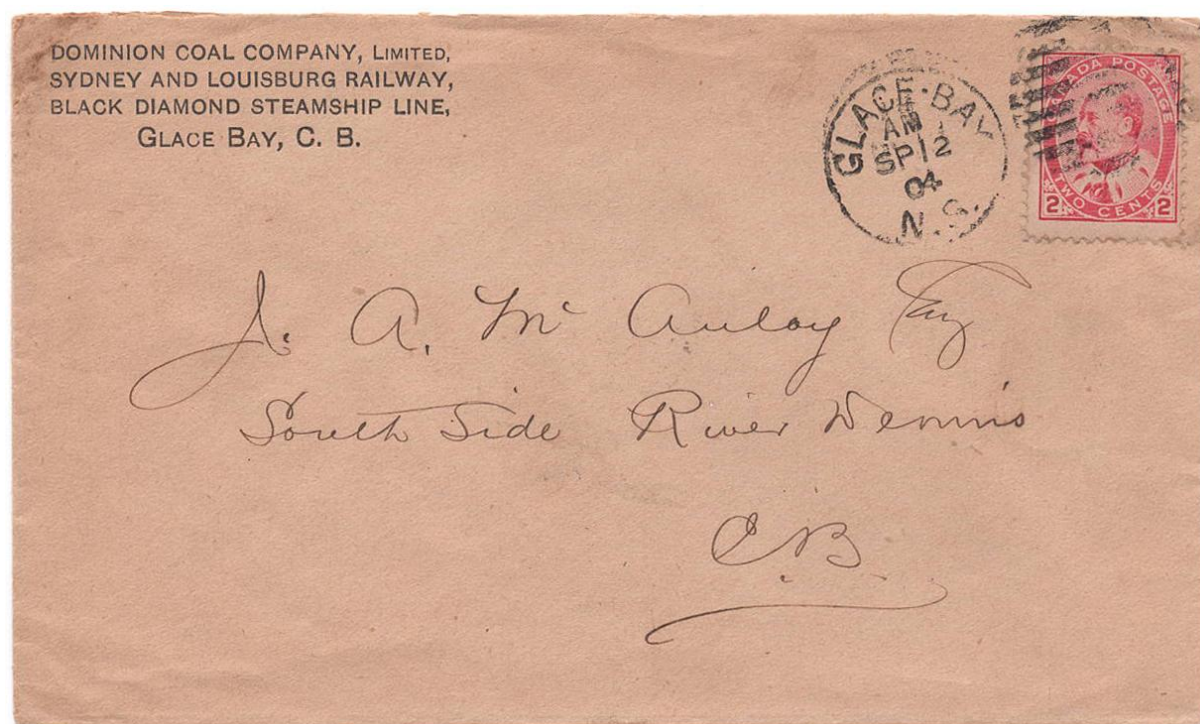 DOMINION COAL COMPANY, LIMITED,
SYDNEY AND LOUISBURG RAILWAY,
BLACK DIAMOND STEAMSHIP LINE,
GLACE BAY, C. B.
GLACE-BAY
AM
SP 12
04
N.S.
CANADA POSTAGE
TWO CENTS
2 2
J. A. Mc Aulay Esq
South Side River Dennis
C.B.